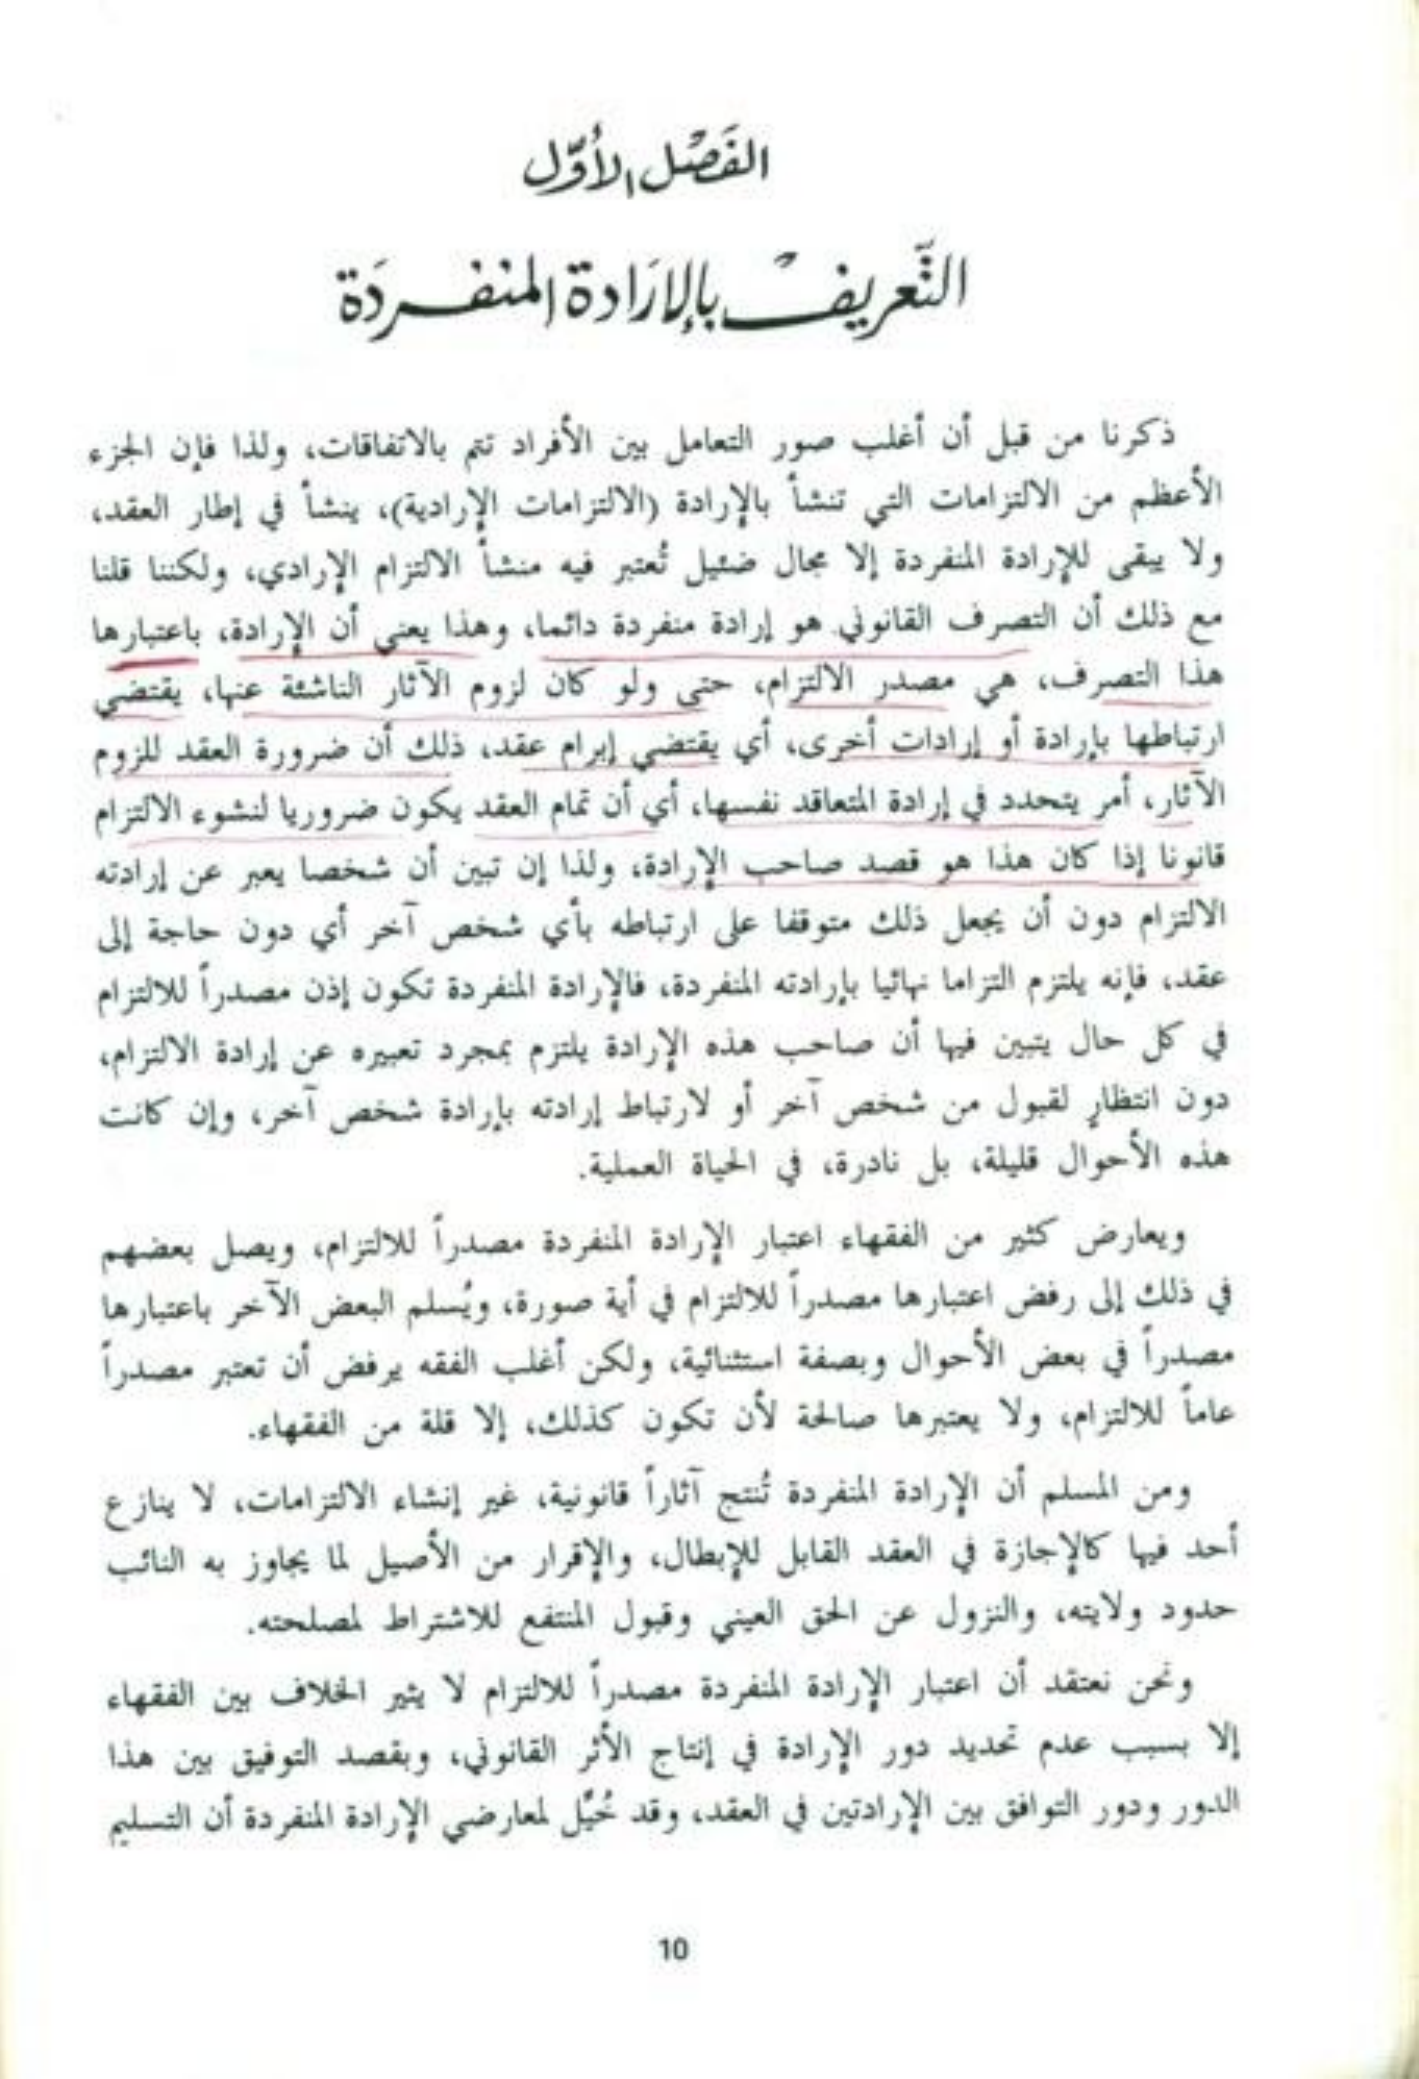 الفَصْل الأوّل
التَّعريف بالإرَادة المنفردَة
ذكرنا من قبل أن أغلب صور التعامل بين الأفراد تتم بالاتفاقات، ولذا فإن الجزء
الأعظم من الالتزامات التي تنشأ بالإرادة (الالتزامات الإرادية)، ينشأ في إطار العقد،
ولا يبقى للإرادة المنفردة إلا مجال ضئيل تُعتبر فيه منشأ الالتزام الإرادي، ولكننا قلنا
مع ذلك أن التصرف القانوني هو إرادة منفردة دائما، وهذا يعني أن الإرادة، باعتبارها
هذا التصرف، هي مصدر الالتزام، حتى ولو كان لزوم الآثار الناشئة عنها، يقتضي
ارتباطها بإرادة أو إرادات أخرى، أي يقتضي إبرام عقد، ذلك أن ضرورة العقد للزوم
الآثار، أمر يتحدد في إرادة المتعاقد نفسها، أي أن تمام العقد يكون ضروريا لنشوء الالتزام
قانونا إذا كان هذا هو قصد صاحب الإرادة، ولذا إن تبين أن شخصا يعبر عن إرادته
الالتزام دون أن يجعل ذلك متوقفا على ارتباطه بأي شخص آخر أي دون حاجة إلى
عقد، فإنه يلتزم التزاما نهائيا بإرادته المنفردة، فالإرادة المنفردة تكون إذن مصدراً للالتزام
في كل حال يتبين فيها أن صاحب هذه الإرادة يلتزم بمجرد تعبيره عن إرادة الالتزام،
دون انتظارٍ لقبول من شخص آخر أو لارتباط إرادته بإرادة شخص آخر، وإن كانت
هذه الأحوال قليلة، بل نادرة، في الحياة العملية.
ويعارض كثير من الفقهاء اعتبار الإرادة المنفردة مصدراً للالتزام، ويصل بعضهم
في ذلك إلى رفض اعتبارها مصدراً للالتزام في أية صورة، ويُسلم البعض الآخر باعتبارها
مصدراً في بعض الأحوال وبصفة استثنائية، ولكن أغلب الفقه يرفض أن تعتبر مصدراً
عاماً للالتزام، ولا يعتبرها صالحة لأن تكون كذلك، إلا قلة من الفقهاء.
ومن المسلم أن الإرادة المنفردة تُنتج آثاراً قانونية، غير إنشاء الالتزامات، لا ينازع
أحد فيها كالإجازة في العقد القابل للإبطال، والإقرار من الأصيل لما يجاوز به النائب
حدود ولايته، والنزول عن الحق العيني وقبول المنتفع للاشتراط لمصلحته.
ونحن نعتقد أن اعتبار الإرادة المنفردة مصدراً للالتزام لا يثير الخلاف بين الفقهاء
إلا بسبب عدم تحديد دور الإرادة في إنتاج الأثر القانوني، وبقصد التوفيق بين هذا
الدور ودور التوافق بين الإرادتين في العقد، وقد خُيِّل لمعارضي الإرادة المنفردة أن التسليم
10